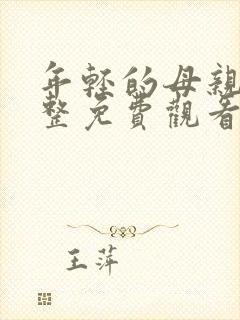 年轻的母親
整免費觀看
王萍